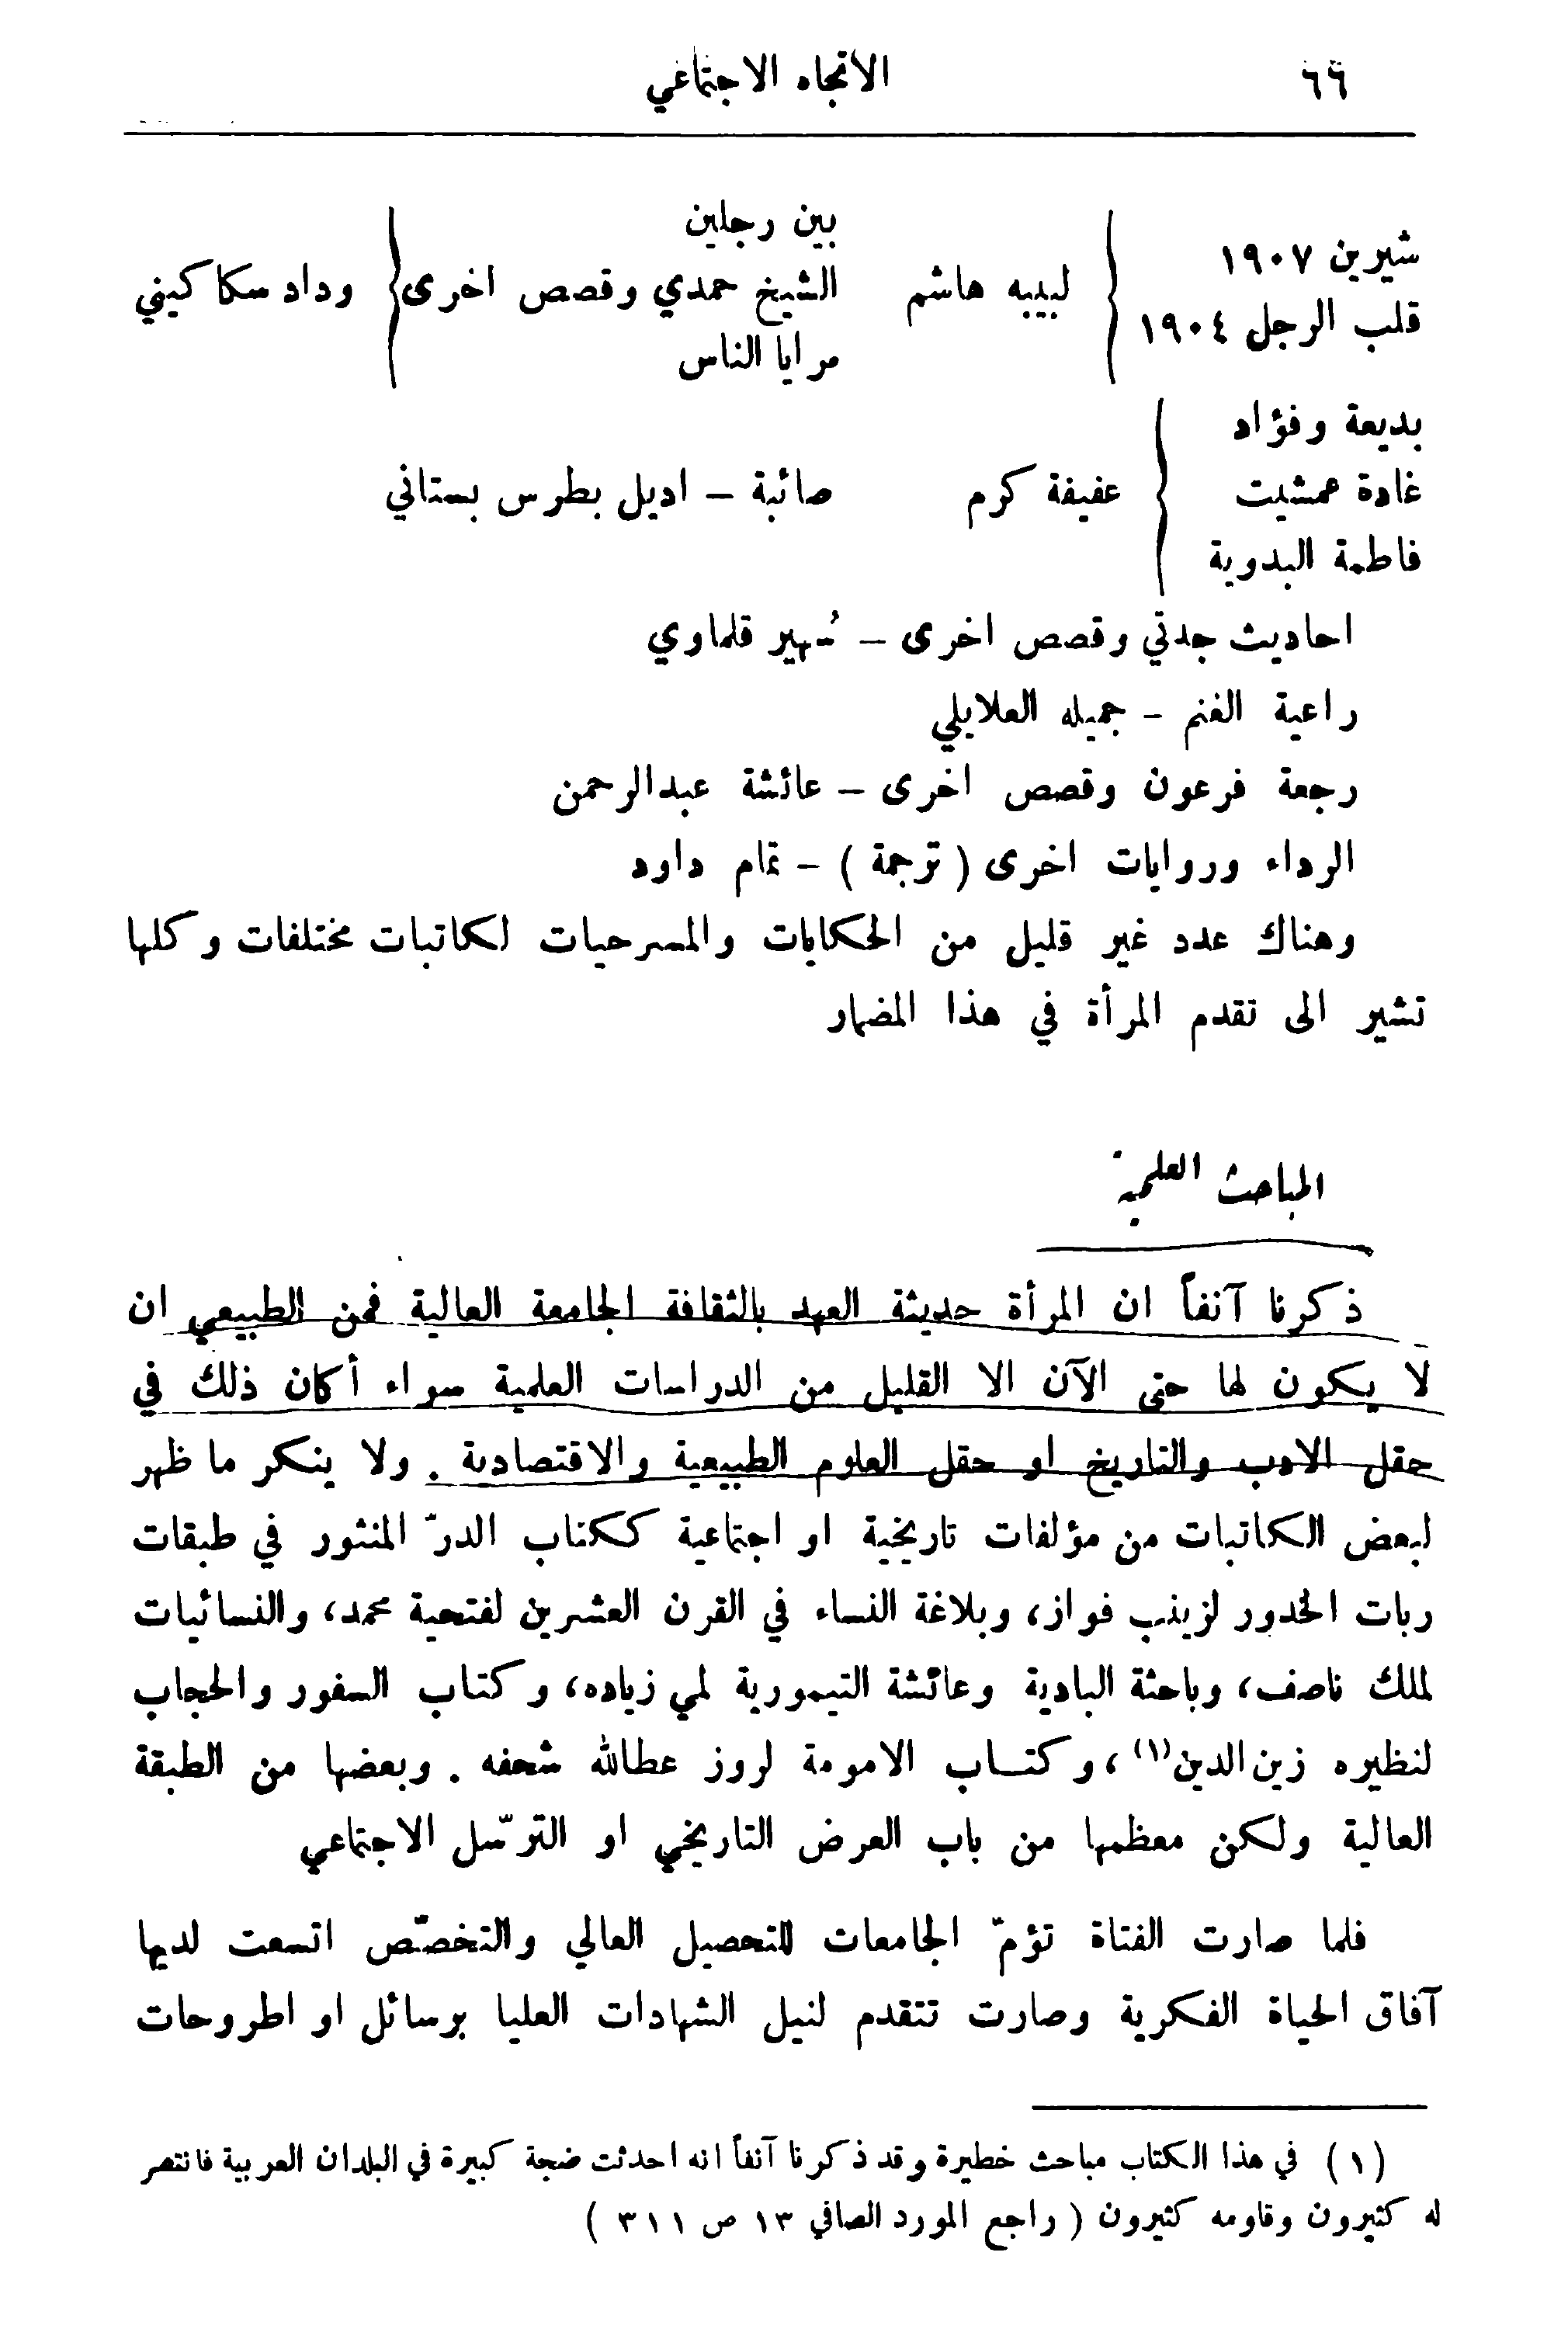 ٦٦ الاتجاه الاجتماعي
شيرين ١٩٠٧
قلب الرجل ١٩٠٤
لبيبه هاشم
بين رجلين
الشيخ حمدي وقصص اخرى
مرايا الناس
وداد سكاكيني
بديعة وفؤاد
غادة عمشيت
فاطمة البدوية
عفيفة كرم
صائبة – اديل بطرس بستاني
احاديث جدتي وقصص اخرى – سُهير قلماوي
راعية الغنم – جميله العلايلي
رجعة فرعون وقصص اخرى – عائشة عبدالرحمن
الرداء وروايات اخرى ( ترجمة ) – تمام داود
وهناك عدد غير قليل من الحكايات والمسرحيات لكاتبات مختلفات وكلها
تشير الى تقدم المرأة في هذا المضمار
المباحث العلمية
ذكرنا آنفاً ان المرأة حديثة العهد بالثقافة الجامعة العالية فمن الطبيعي ان
لا يكون لها حتى الآن الا القليل من الدراسات العلمية سواء أكان ذلك في
حقل الادب والتاريخ او حقل العلوم الطبيعية والاقتصادية . ولا ينكر ما ظهر
لبعض الكاتبات من مؤلفات تاريخية او اجتماعية ككتاب الدرّ المنثور في طبقات
ربات الخدور لزينب فواز، وبلاغة النساء في القرن العشرين لفتحية محمد، والنسائيات
لملك ناصف، وباحثة البادية وعائشة التيمورية لمي زياده، وكتاب السفور والحجاب
لنظيره زين الدين(١) ، وكتاب الامومة لروز عطالله شحفه . وبعضها من الطبقة
العالية ولكن معظمها من باب العرض التاريخي او الترسّل الاجتماعي
فلما صارت الفتاة تؤمّ الجامعات للتحصيل العالي والتخصّص اتسعت لديها
آفاق الحياة الفكرية وصارت تتقدم لنيل الشهادات العليا برسائل او اطروحات
(١) في هذا الكتاب مباحث خطيرة وقد ذكرنا آنفاً انه احدثت ضجة كبيرة في البلدان العربية فانتصر
له كثيرون وقاومه كثيرون ( راجع المورد الصافي ١٣ ص ٣١١ )